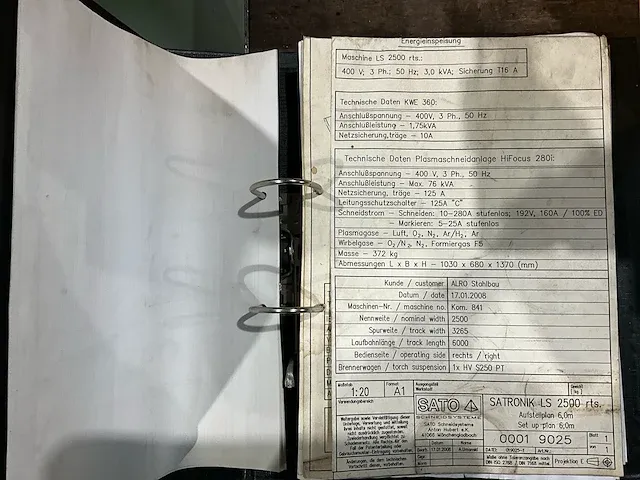 Energieeinspeisung
Maschine LS 2500 rts.:
400 V; 3 Ph.; 50 Hz; 3,0 kVA; Sicherung T16 A
Technische Daten KWE 360:
Anschlußspannung – 400V, 3 Ph., 50 Hz
Anschlußleistung – 1,75kVA
Netzsicherung,träge – 10A
Technische Daten Plasmaschneidanlage HiFocus 280i:
Anschlußspannung – 400 V, 3 Ph., 50 Hz
Anschlußleistung – Max. 76 kVA
Netzsicherung, träge – 125 A
Leitungsschutzschalter – 125A "C"
Schneidstrom – Schneiden: 10–280A stufenlos; 192V, 160A / 100% ED
– Markieren: 5–25A stufenlos
Plasmagase – Luft, O₂, N₂, Ar/H₂, Ar
Wirbelgase – O₂/N₂, N₂, Formiergas F5
Masse – 372 kg
Abmessungen L x B x H – 1030 x 680 x 1370 (mm)
Kunde / customer ALRO Stahlbau
Datum / date 17.01.2008
Maschinen-Nr. / machine no. Kom. 841
Nennweite / nominal width 2500
Spurweite / track width 3265
Laufbahnlänge / track length 6000
Bedienseite / operating side rechts / right
Brennerwagen / torch suspension 1x HV S250 PT
Maßstab 1:20
Format A1
Verwendungsbereich
SATO
SCHNEIDSYSTEME
SATO Schneidsysteme
Anton Hubert e.K.
41066 Mönchengladbach
SATRONIK LS 2500 rts.
Aufstellplan 6,0m
Set up-plan 6,0m
0001 9025
Blatt 1
von 1
Datum Name
17.01.2008
Projektion E